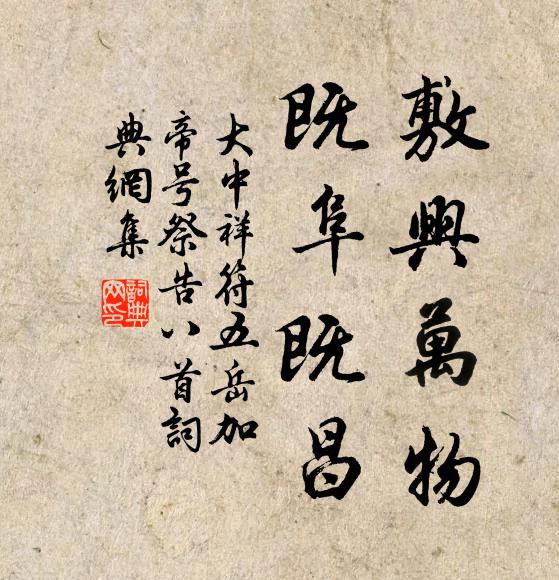 敷興萬物
既阜既昌
大中祥符五岳加
帝号祭告八首詞
典網集
詞典
网印